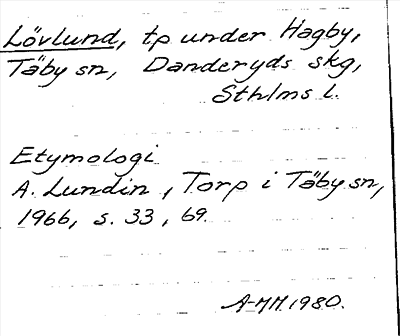 Lövlund, tp under Hagby,
Täby sn, Danderyds skg,
Sthlms l.
Etymologi
A. Lundin, Torp i Täby sn,
1966, s. 33, 69.
A-MH 1980.